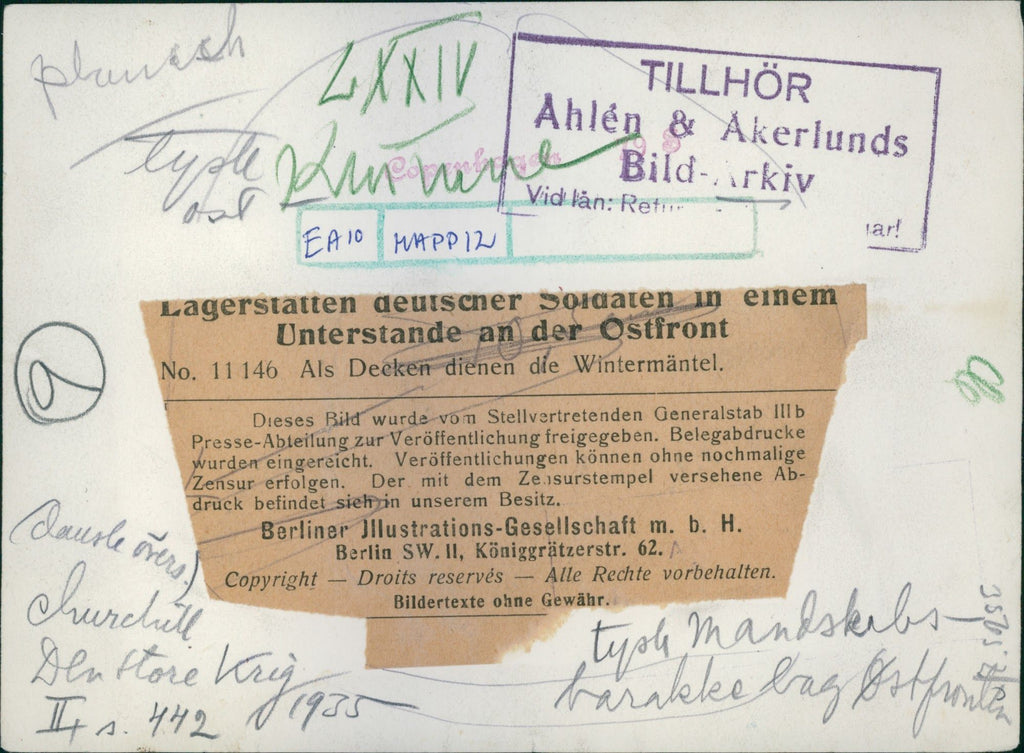 LXXIV
TILLHÖR
Ahlén & Åkerlunds
Bild-Arkiv
Vid lån: Retur
ar!
Copenhagen
tysk
øst
EA10 MAPP12
Lagerstätten deutscher Soldaten in einem
Unterstande an der Ostfront
No. 11146 Als Decken dienen die Wintermäntel.
Dieses Bild wurde vom Stellvertretenden Generalstab IIIb
Presse-Abteilung zur Veröffentlichung freigegeben. Belegabdrucke
wurden eingereicht. Veröffentlichungen können ohne nochmalige
Zensur erfolgen. Der mit dem Zensurstempel versehene Ab-
druck befindet sich in unserem Besitz.
Berliner Jllustrations-Gesellschaft m. b. H.
Berlin SW. 11, Königgrätzerstr. 62.
Copyright — Droits reservés — Alle Rechte vorbehalten.
Bildertexte ohne Gewähr.
(Danske övers.)
Churchill
Den store Krig
II s. 442 1935
tysk Mandskabs-
barakke bag Østfronten